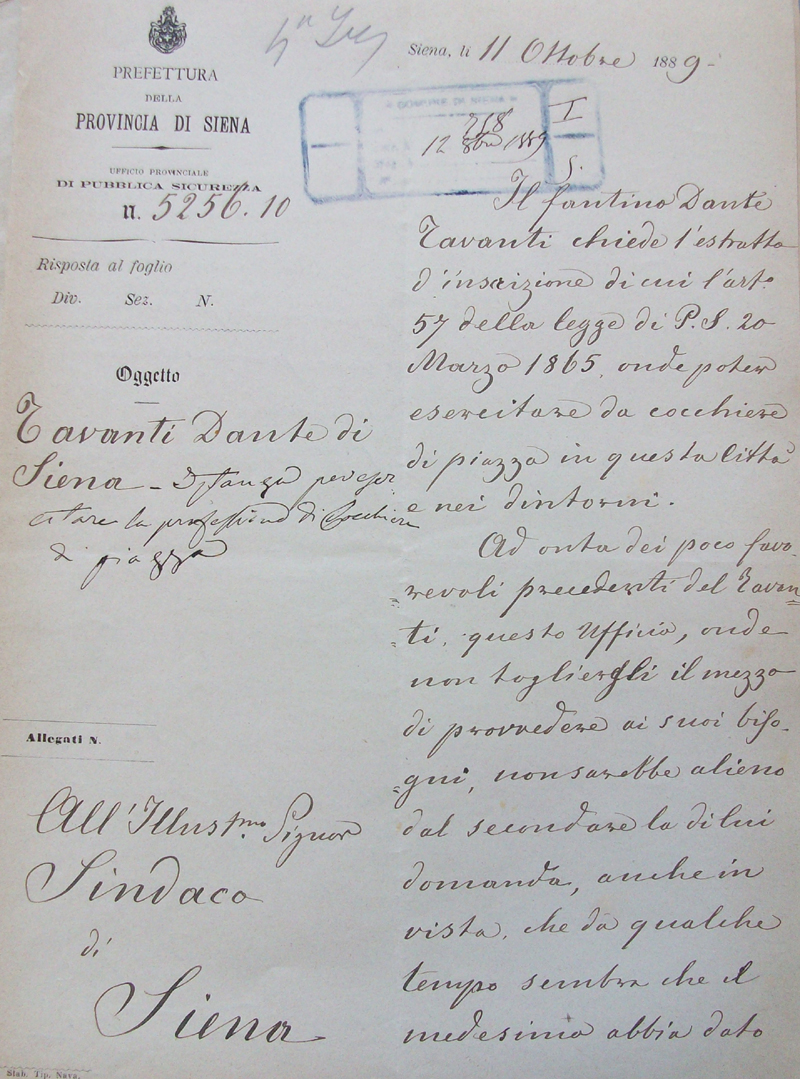 PREFETTURA
DELLA
PROVINCIA DI SIENA
UFFICIO PROVINCIALE
DI PUBBLICA SICUREZZA
N. 5256.10
Risposta al foglio
Div. Sez. N.
Oggetto
Tavanti Dante di
Siena - Istanza per eser
citare la professione di Cocchiere
di piazza
Allegati N.
All'Illustmo Signor
Sindaco
di
Siena
Stab. Tip. Nava.
Siena, li 11 Ottobre 1889-
COMUNE DI SIENA
218
12 8bre 1889
I
S.
Il fantino Dante
Tavanti chiede l'estratto
d'inscrizione di cui l'arto
57 della legge di P. S. 20
Marzo 1865, onde poter
esercitare da cocchiere
di piazza in questa Città
e nei dintorni.
Ad onta dei poco favo-
revoli precedenti del Tavan=
=ti, questo Ufficio, onde
non togliergli il mezzo
di provvedere ai suoi biso-
=gni, non sarebbe alieno
dal secondare la di lui
domanda, anche in
vista, che da qualche
tempo sembra che il
medesimo abbia dato